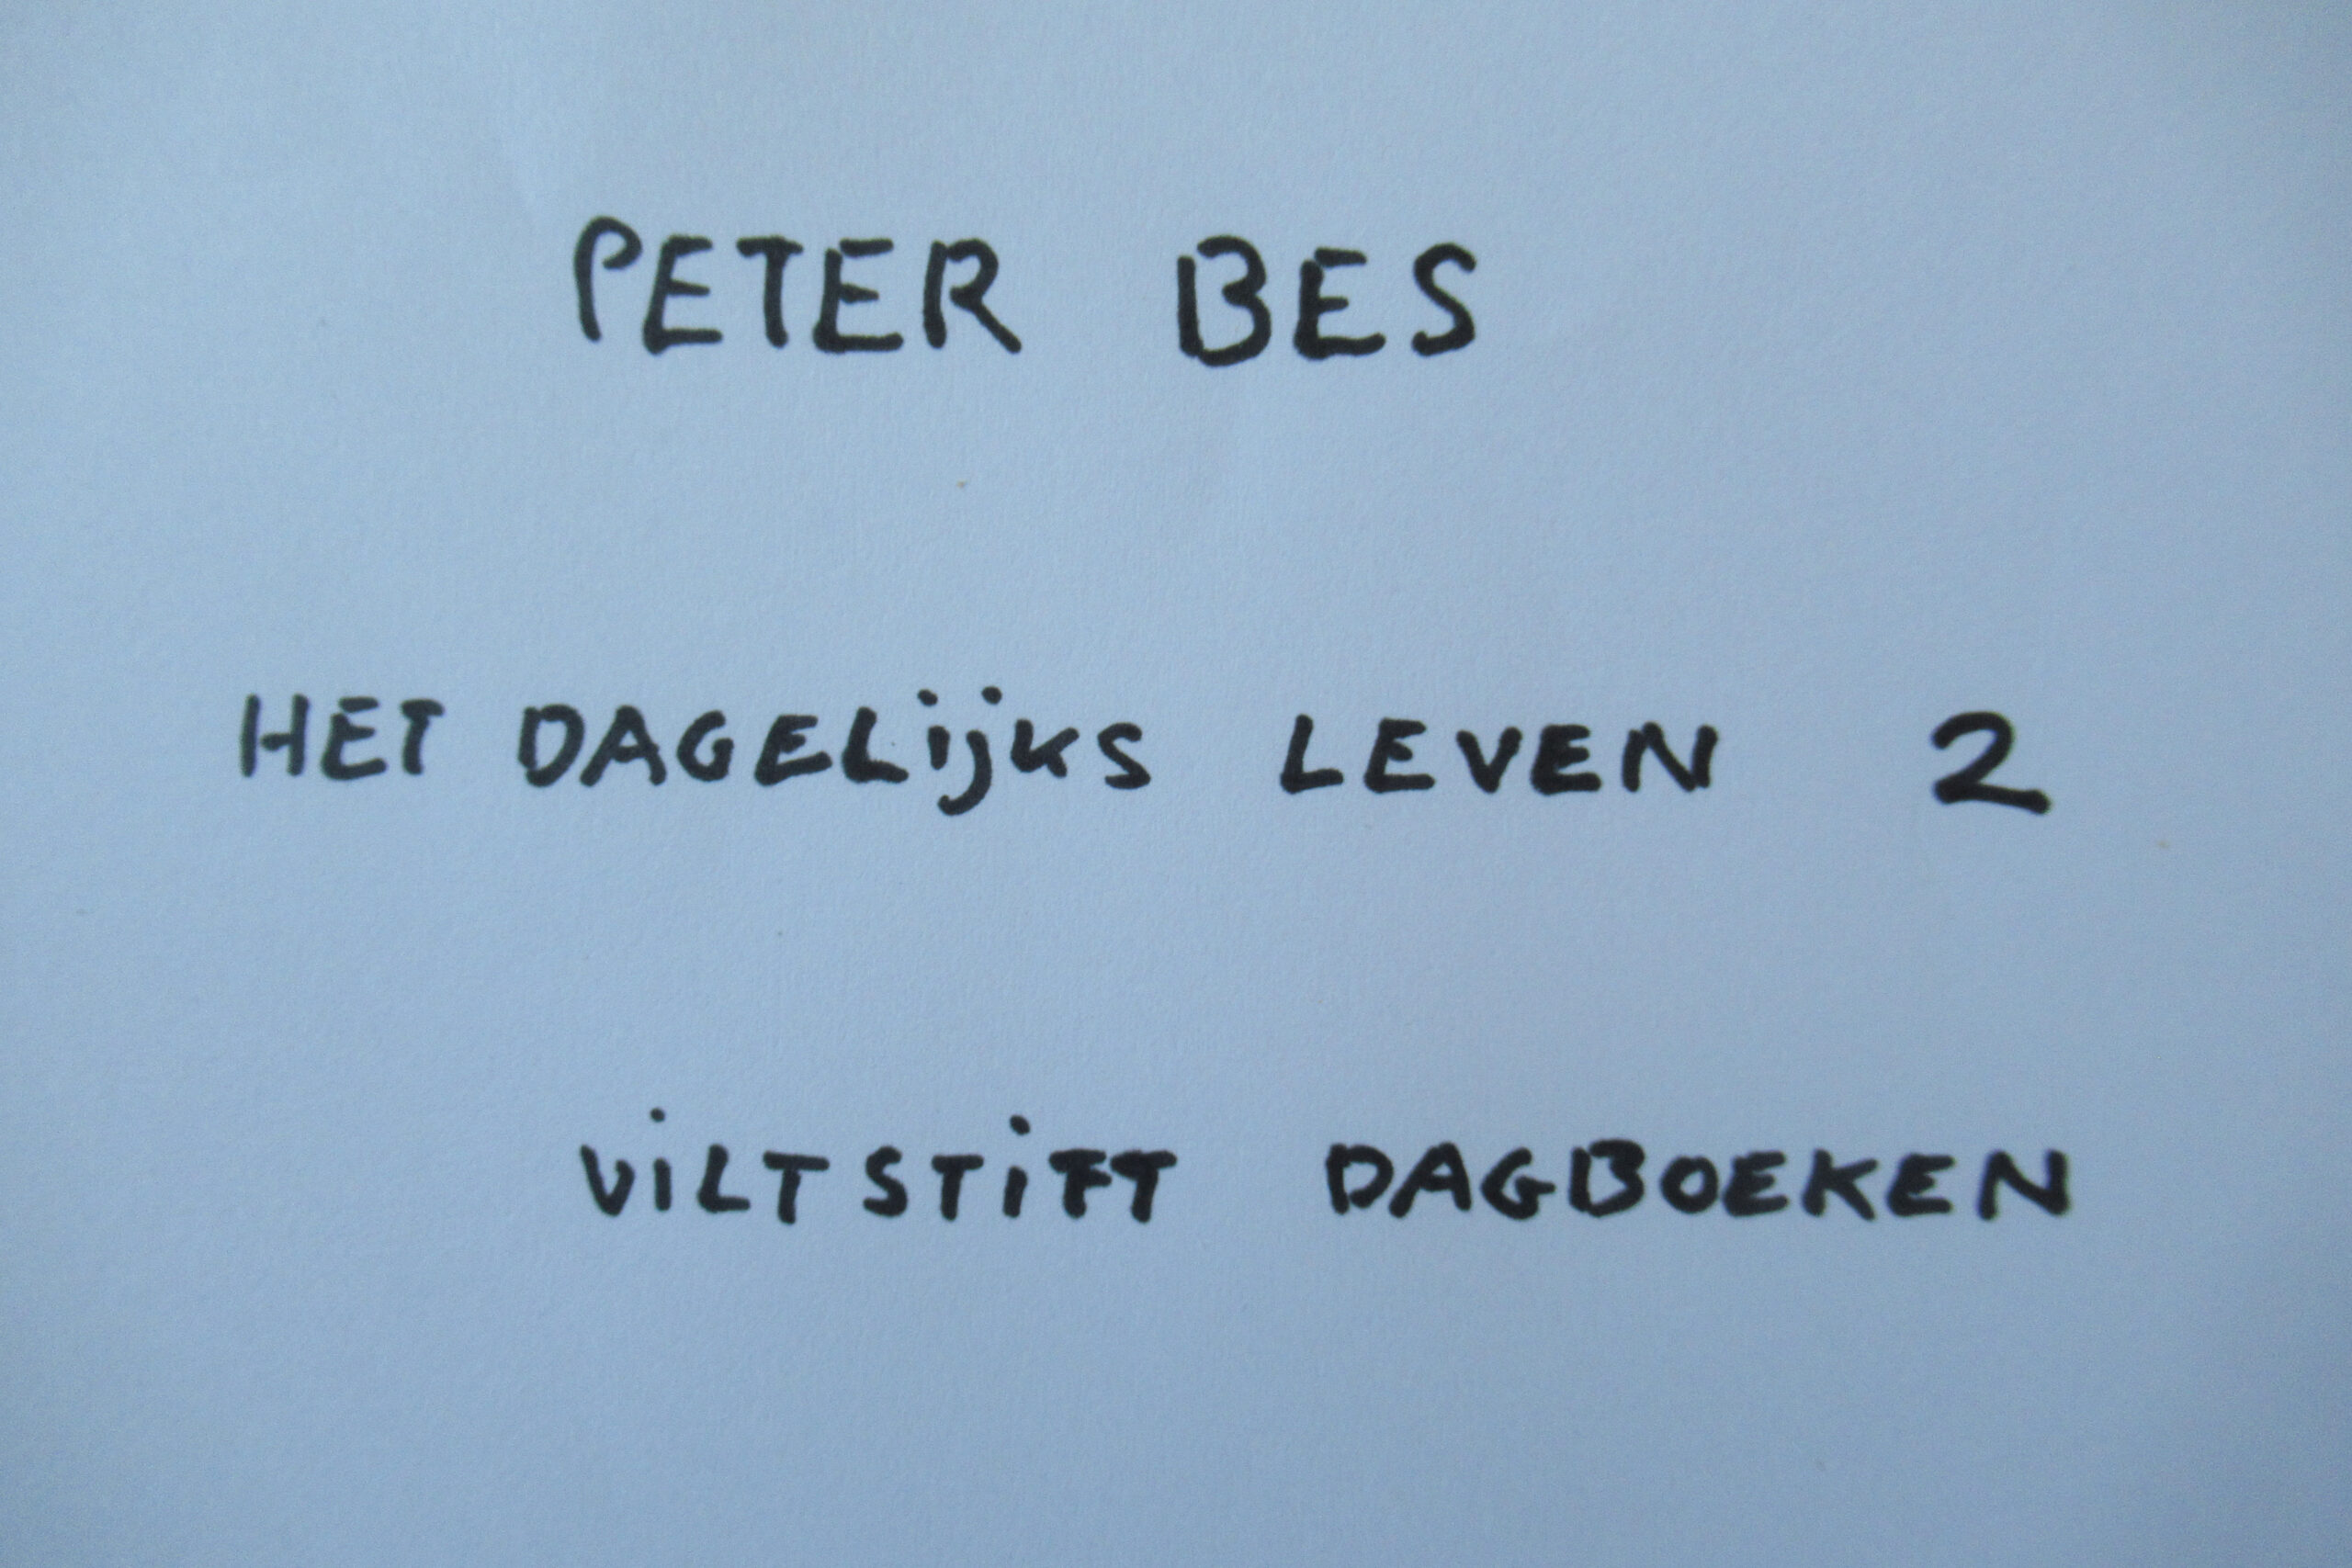 PETER BES
HET DAGELijKS LEVEN 2
ViLTSTiFT DAGBOEKEN